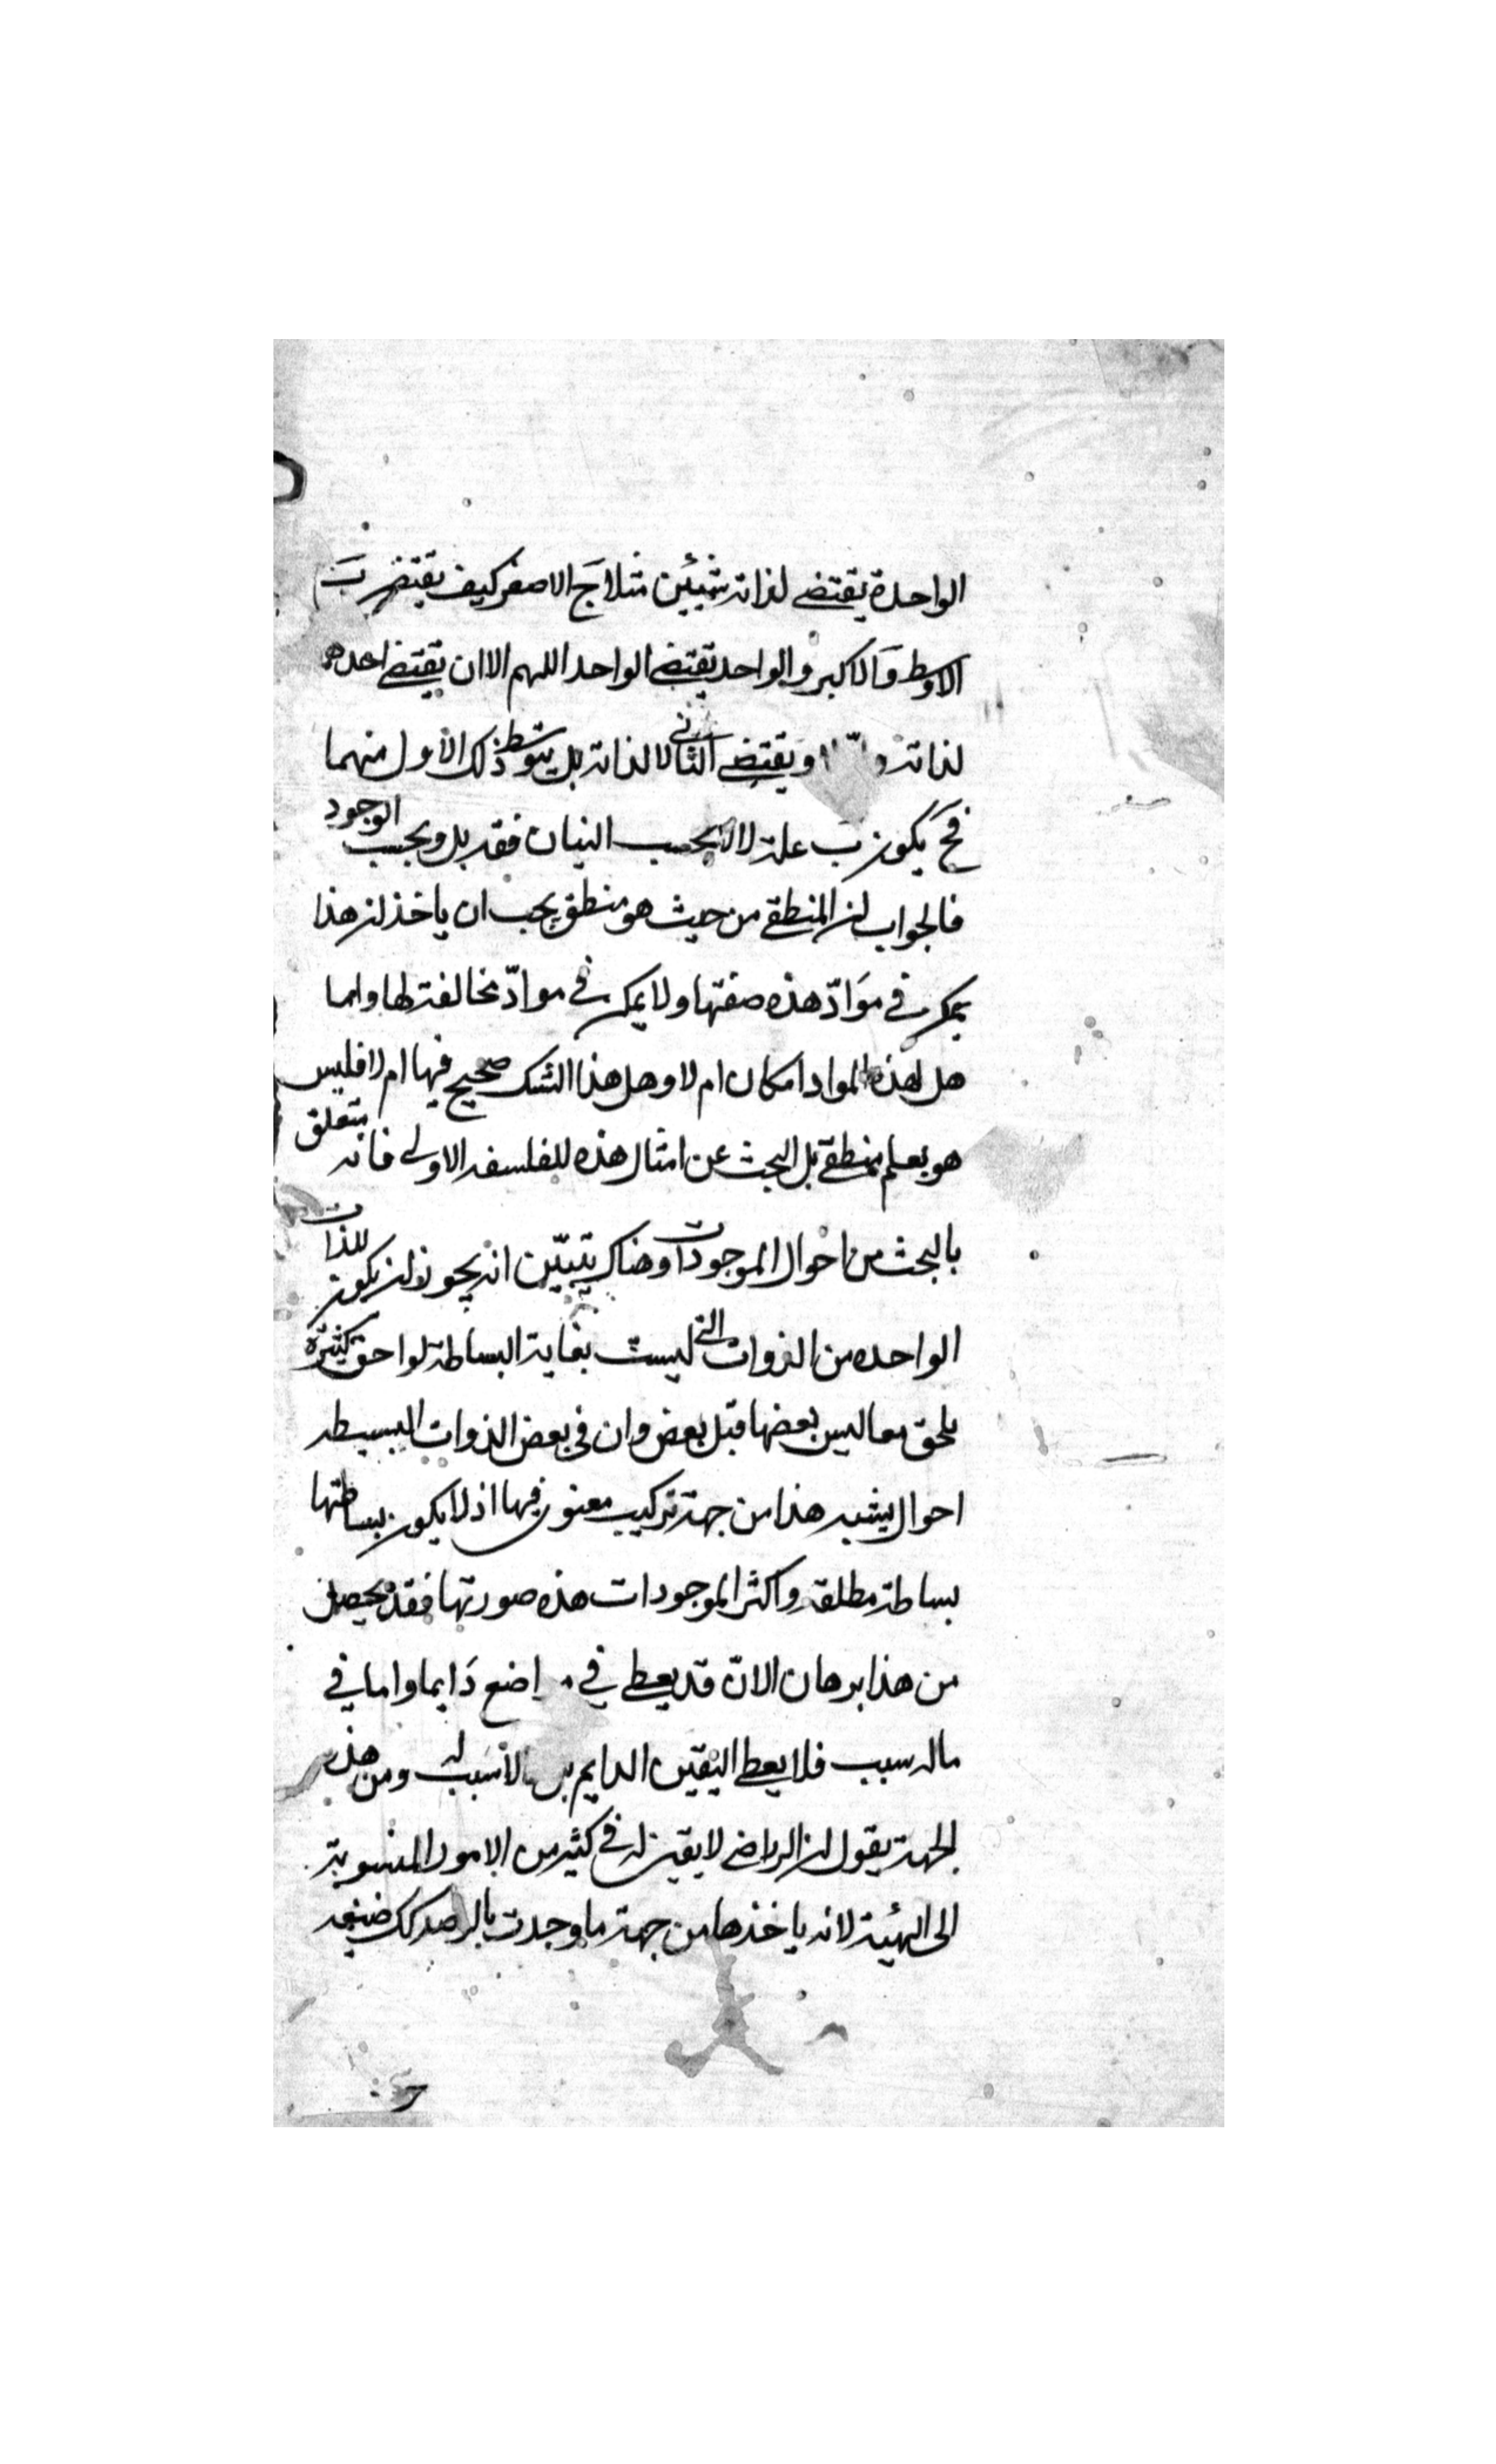 الواحدة يقتضي لذاته شيئين مثلا جَ الاصغر كيف يقتضي بَ
الاوسط وَ الاكبر والواحد يقتضي الواحد اللهم الا ان يقتضي احدهما
لذاته اولا ويقتضي الثاني لا لذاته بل بتوسط ذلك الاول منهما
فحَ يكون بَ علة لا بحسب البيان فقد بل وبحسب الوجود
فالجواب ان المنطقي من حيث هو منطقي يجب ان ياخذ ان هذا
يمكن في موَادّ هذه صفتها ولا يمكن في موادّ مخالفة لها واما
هل لهذه المواد امكان ام لا وهل هذا الشك صحيح فيها ام لا فليس
هو بعلم منطقي بل البحث عن امثال هذه للفلسفه الاولى فانه يتعلق
بالبحث من احوال الموجودات وهناك يتبيّن انه يجوز ان يكون للذات
الواحده من الذوات التي ليست بغاية البساطة لواحق كثيرة
يلحق معا ليس بعضها قبل بعض وان في بعض الذوات البسيطه
احوال يشبه هذا من جهة تركيب معنوي فيها اذ لا يكون بساطتها
بساطة مطلقة واكثر الموجودات هذه صورتها فقد يحصل
من هذا برهان الانّ قد يعطي في مواضع دَايما واما في
ماله سبب فلا يعطي اليقين الدايم بل لا سبب له ومن هذه
الجهة يقول ان الرياضي لا يقين له في كثير من الامور المنسوبة
الى الهيئة لانه ياخذها من جهة ما وجدت بالرصد